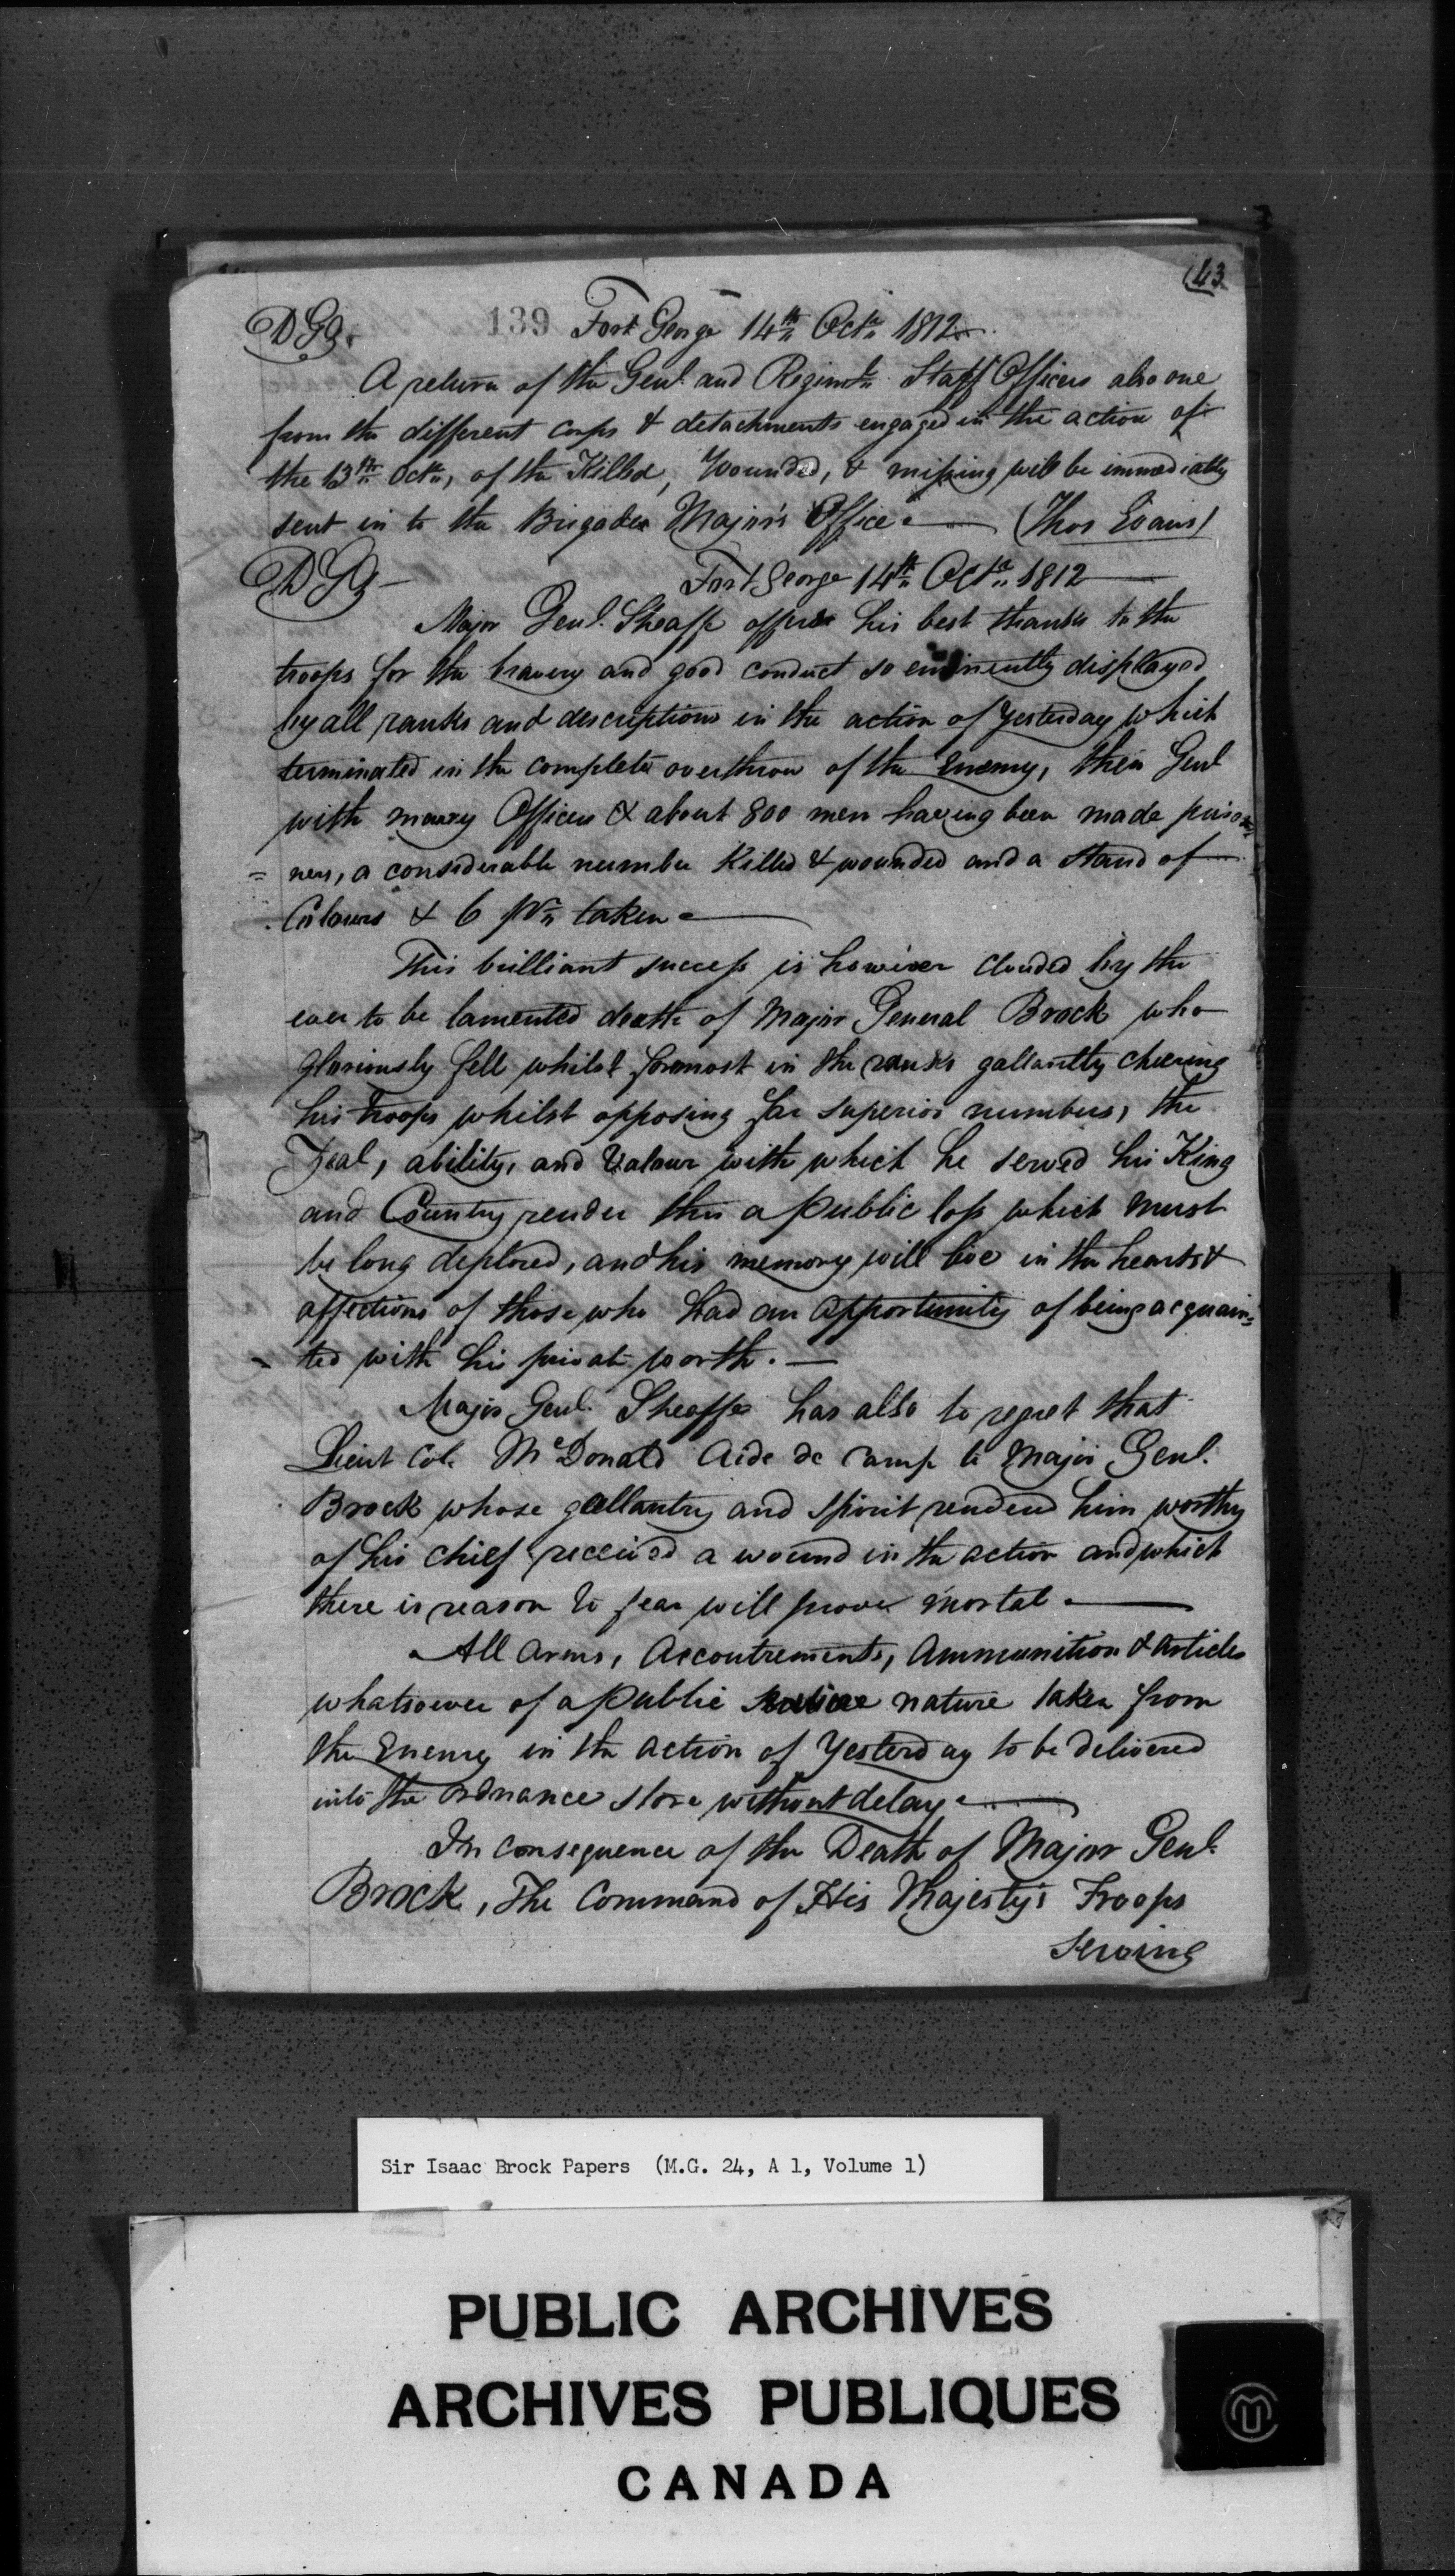 43
DGO.
139 Fort George 14th Octr 1812
A return of the Genl. and Regimtl. Staff Officers also one
from the different corps & detachments engaged in the action of
the 13th Octr, of the Killed, Wounded, & missing will be immediately
sent in to the Brigade Major's Office. (Thos Evans)
DGO
Fort George 14th Octr 1812
Major Genl. Sheaffe offers his best thanks to the
troops for the bravery and good conduct so eminently displayed
by all ranks and descriptions in the action of Yesterday which
terminated in the complete overthrow of the Enemy, their Genl
with many Officers & about 800 men having been made priso=
=ners, a considerable number Killed & wounded and a Stand of
Colours & 6 pr taken
This brilliant success is however clouded by the
ever to be lamented death of Major General Brock who
gloriously fell whilst foremost in the ranks gallantly cheering
his troops whilst opposing far superior numbers, the
Zeal, ability, and Valour with which he served his King
and Country render this a Public loss which must
be long deplored, and his memory will live in the hearts &
affections of those who had an opportunity of being acquain=
=ted with his private worth.
Major Genl. Sheaffe has also to regret that
Lieut Col. McDonald Aide de Camp to Major Genl.
Brock whose gallantry and Spirit rendered him worthy
of his chief received a wound in the action and which
there is reason to fear will prove mortal.
All Arms, Accoutrements, Ammunition & Articles
whatsoever of a Public nature taken from
the Enemy in the action of Yesterday to be delivered
into the Ordnance Store without delay.
In consequence of the Death of Major Genl.
Brock, The Command of His Majesty's Troops
Serving
Sir Isaac Brock Papers (M.G. 24, A 1, Volume 1)
PUBLIC ARCHIVES
ARCHIVES PUBLIQUES
CANADA